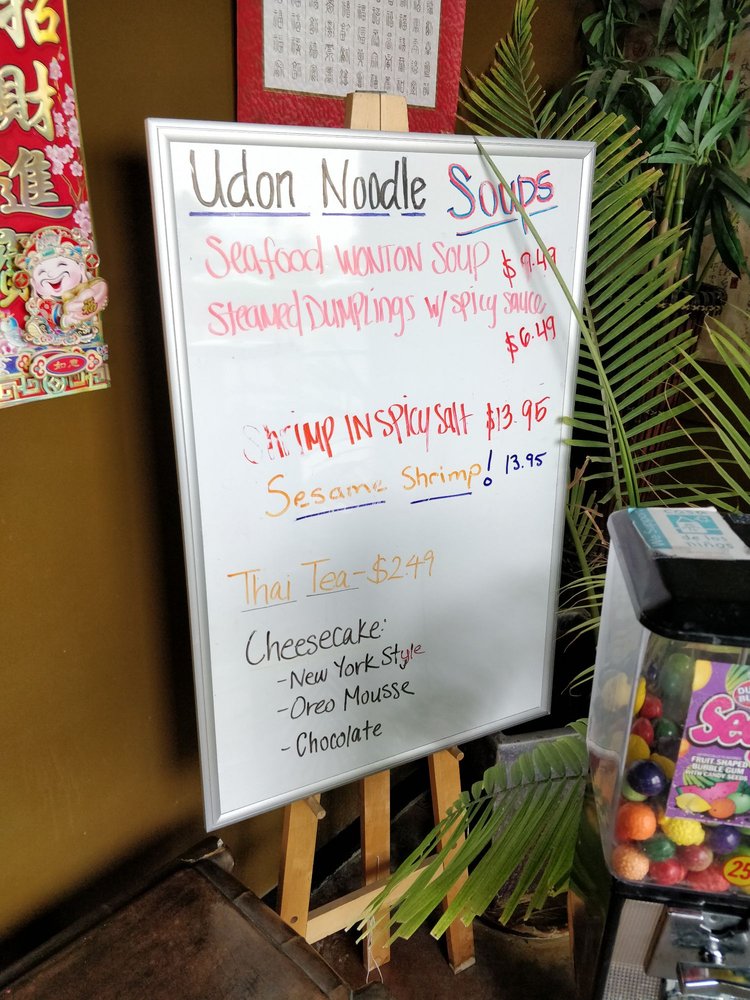 招
財
進
如意
Udon Noodle Soups
Seafood WONTON SOUP $9.49
Steamed Dumplings w/ spicy sauce
$6.49
Shrimp IN spicy salt $13.95
Sesame Shrimp! 13.95
Thai Tea - $2.49
Cheesecake:
- New York Style
- Oreo Mousse
- Chocolate
de los
niños
FRUIT SHAPED
BUBBLE GUM
WITH CANDY SEEDS
25